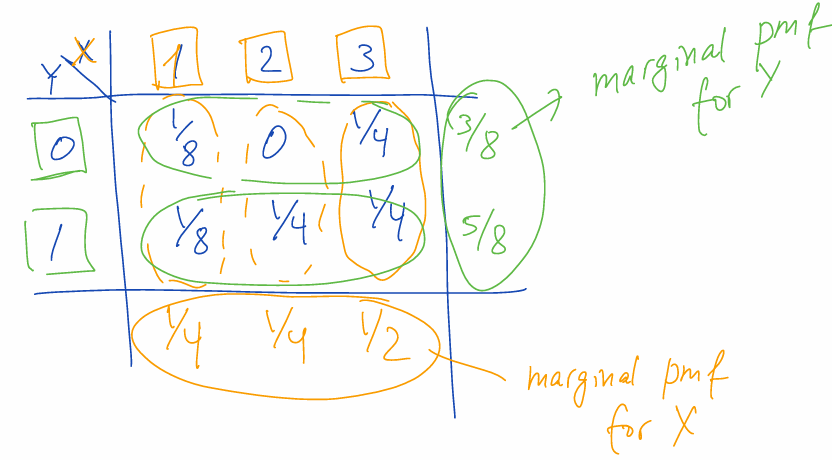 X 1 2 3
Y
0 1/8 0 1/4 3/8
1 1/8 1/4 1/4 5/8
1/4 1/4 1/2
marginal pmf
for Y
marginal pmf
for X